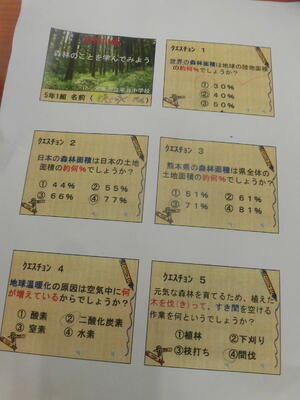 森林のことを学んでみよう
5年1組 名前（
クエスチョン 1
世界の森林面積は地球の陸地面積
の約何％でしょうか？
① 30％
② 40％
③ 50％
クエスチョン 2
日本の森林面積は日本の土地
面積の約何％でしょうか？
① 44％ ② 55％
③ 66％ ④ 77％
クエスチョン 3
熊本県の森林面積は県全体の
土地面積の約何％でしょうか？
① 51％ ② 61％
③ 71％ ④ 81％
クエスチョン 4
地球温暖化の原因は空気中に何
が増えているからでしょうか？
① 酸素 ② 二酸化炭素
③ 窒素 ④ 水素
クエスチョン 5
元気な森林を育てるため、植えた
木を伐(き)って、すき間を空ける
作業を何というでしょうか？
①植林 ②下刈り
③枝打ち ④間伐